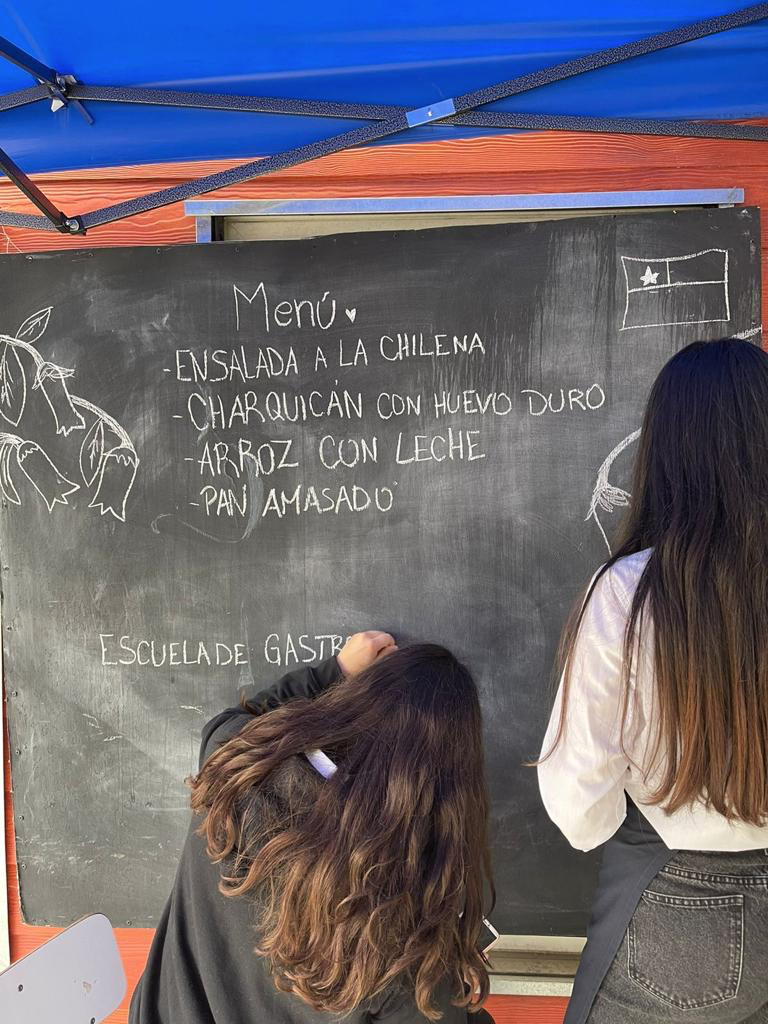 Menú
-ENSALADA A LA CHILENA
-CHARQUICÁN CON HUEVO DURO
-ARROZ CON LECHE
-PAN AMASADO
ESCUELA DE GASTR